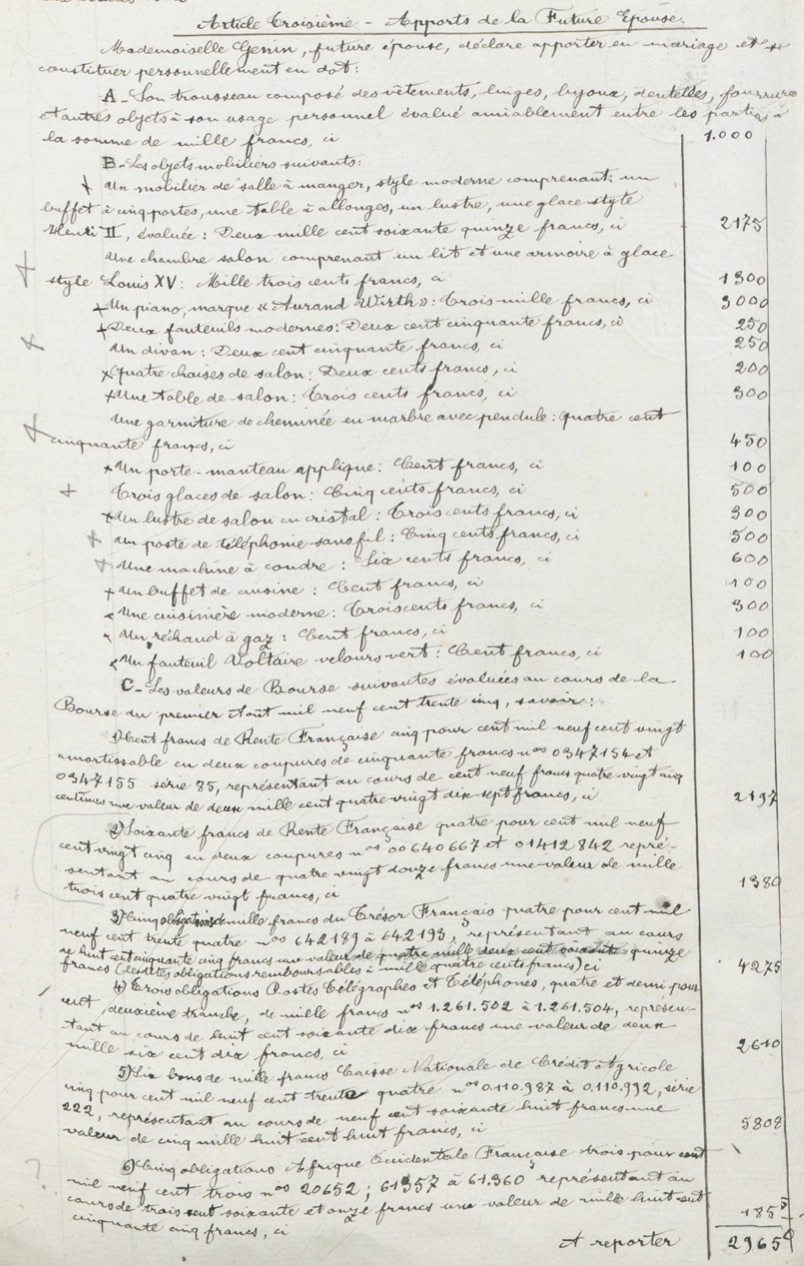 Article Troisième - Apports de la Future Epouse.
Mademoiselle Genin, future épouse, déclare apporter en mariage et
constituer personnellement en dot:
A - Son trousseau composé des vêtements, linges, bijoux, dentelles, fourrures
et autres objets à son usage personnel évalué amiablement entre les parties à
la somme de mille francs, ci 1.000
B - Les objets mobiliers suivants:
Un mobilier de salle à manger, style moderne comprenant: un
buffet à cinq portes, une table à allonges, un lustre, une glace style
Henri II, évaluée: Deux mille cent soixante quinze francs, ci 2175
Une chambre salon comprenant un lit et une armoire à glace
style Louis XV: Mille trois cents francs, ci 1300
Un piano, marque « Aurand Wirth »: Trois mille francs, ci 3000
Deux fauteuils modernes: Deux cent cinquante francs, ci 250
Un divan: Deux cent cinquante francs, ci 250
quatre chaises de salon: Deux cents francs, ci 200
Une table de salon: Trois cents francs, ci 300
Une garniture de cheminée en marbre avec pendule: quatre cent
cinquante francs, ci 450
Un porte-manteau applique: Cent francs, ci 100
Trois glaces de salon: Cinq cents francs, ci 500
Un lustre de salon en cristal: Trois cents francs, ci 300
Un poste de téléphonie sans fil: Cinq cents francs, ci 500
Une machine à coudre: Six cents francs, ci 600
Un buffet de cuisine: Cent francs, ci 100
Une cuisinière moderne: Trois cents francs, ci 300
Un réchaud à gaz: Cent francs, ci 100
Un fauteuil Voltaire velours vert: Cent francs, ci 100
C - Les valeurs de Bourse suivantes évaluées au cours de la
Bourse du premier Août mil neuf cent trente cinq, savoir:
1) Cent francs de Rente Française cinq pour cent mil neuf cent vingt
amortissable en deux coupures de cinquante francs nos 0347154 et
0347155 série 85, représentant au cours de cent neuf francs quatre vingt cinq
centimes une valeur de deux mille cent quatre vingt dix sept francs, ci 2197
2) Soixante francs de Rente Française quatre pour cent mil neuf
cent vingt cinq en deux coupures nos 00640667 et 01412842 repré-
sentant au cours de quatre vingt douze francs une valeur de mille
trois cent quatre vingt francs, ci 1380
3) Cinq obligations de mille francs du Trésor Français quatre pour cent mil
neuf cent trente quatre nos 642189 à 642193, représentant au cours
de huit cent cinquante cinq francs une valeur de quatre mille deux cent soixante quinze
francs (lesdites obligations remboursables à mille quatre cents francs) ci 4275
4) Trois obligations Postes Télégraphes et Téléphones, quatre et demi pour
cent, deuxième tranche, de mille francs nos 1.261.502 à 1.261.504, représen-
tant au cours de huit cent soixante dix francs une valeur de deux
mille six cent dix francs, ci 2610
5) Six bons de mille francs Caisse Nationale de Crédit Agricole
cinq pour cent mil neuf cent trente quatre nos 0.110.987 à 0.110.992, série
222, représentant au cours de neuf cent soixante huit francs une
valeur de cinq mille huit cent huit francs, ci 5808
6) Cinq obligations Afrique Occidentale Française trois pour cent
mil neuf cent trois nos 20652; 61357 à 61360 représentant au
cours de trois cent soixante et onze francs une valeur de mille huit cent
cinquante cinq francs, ci 1855
A reporter 2965